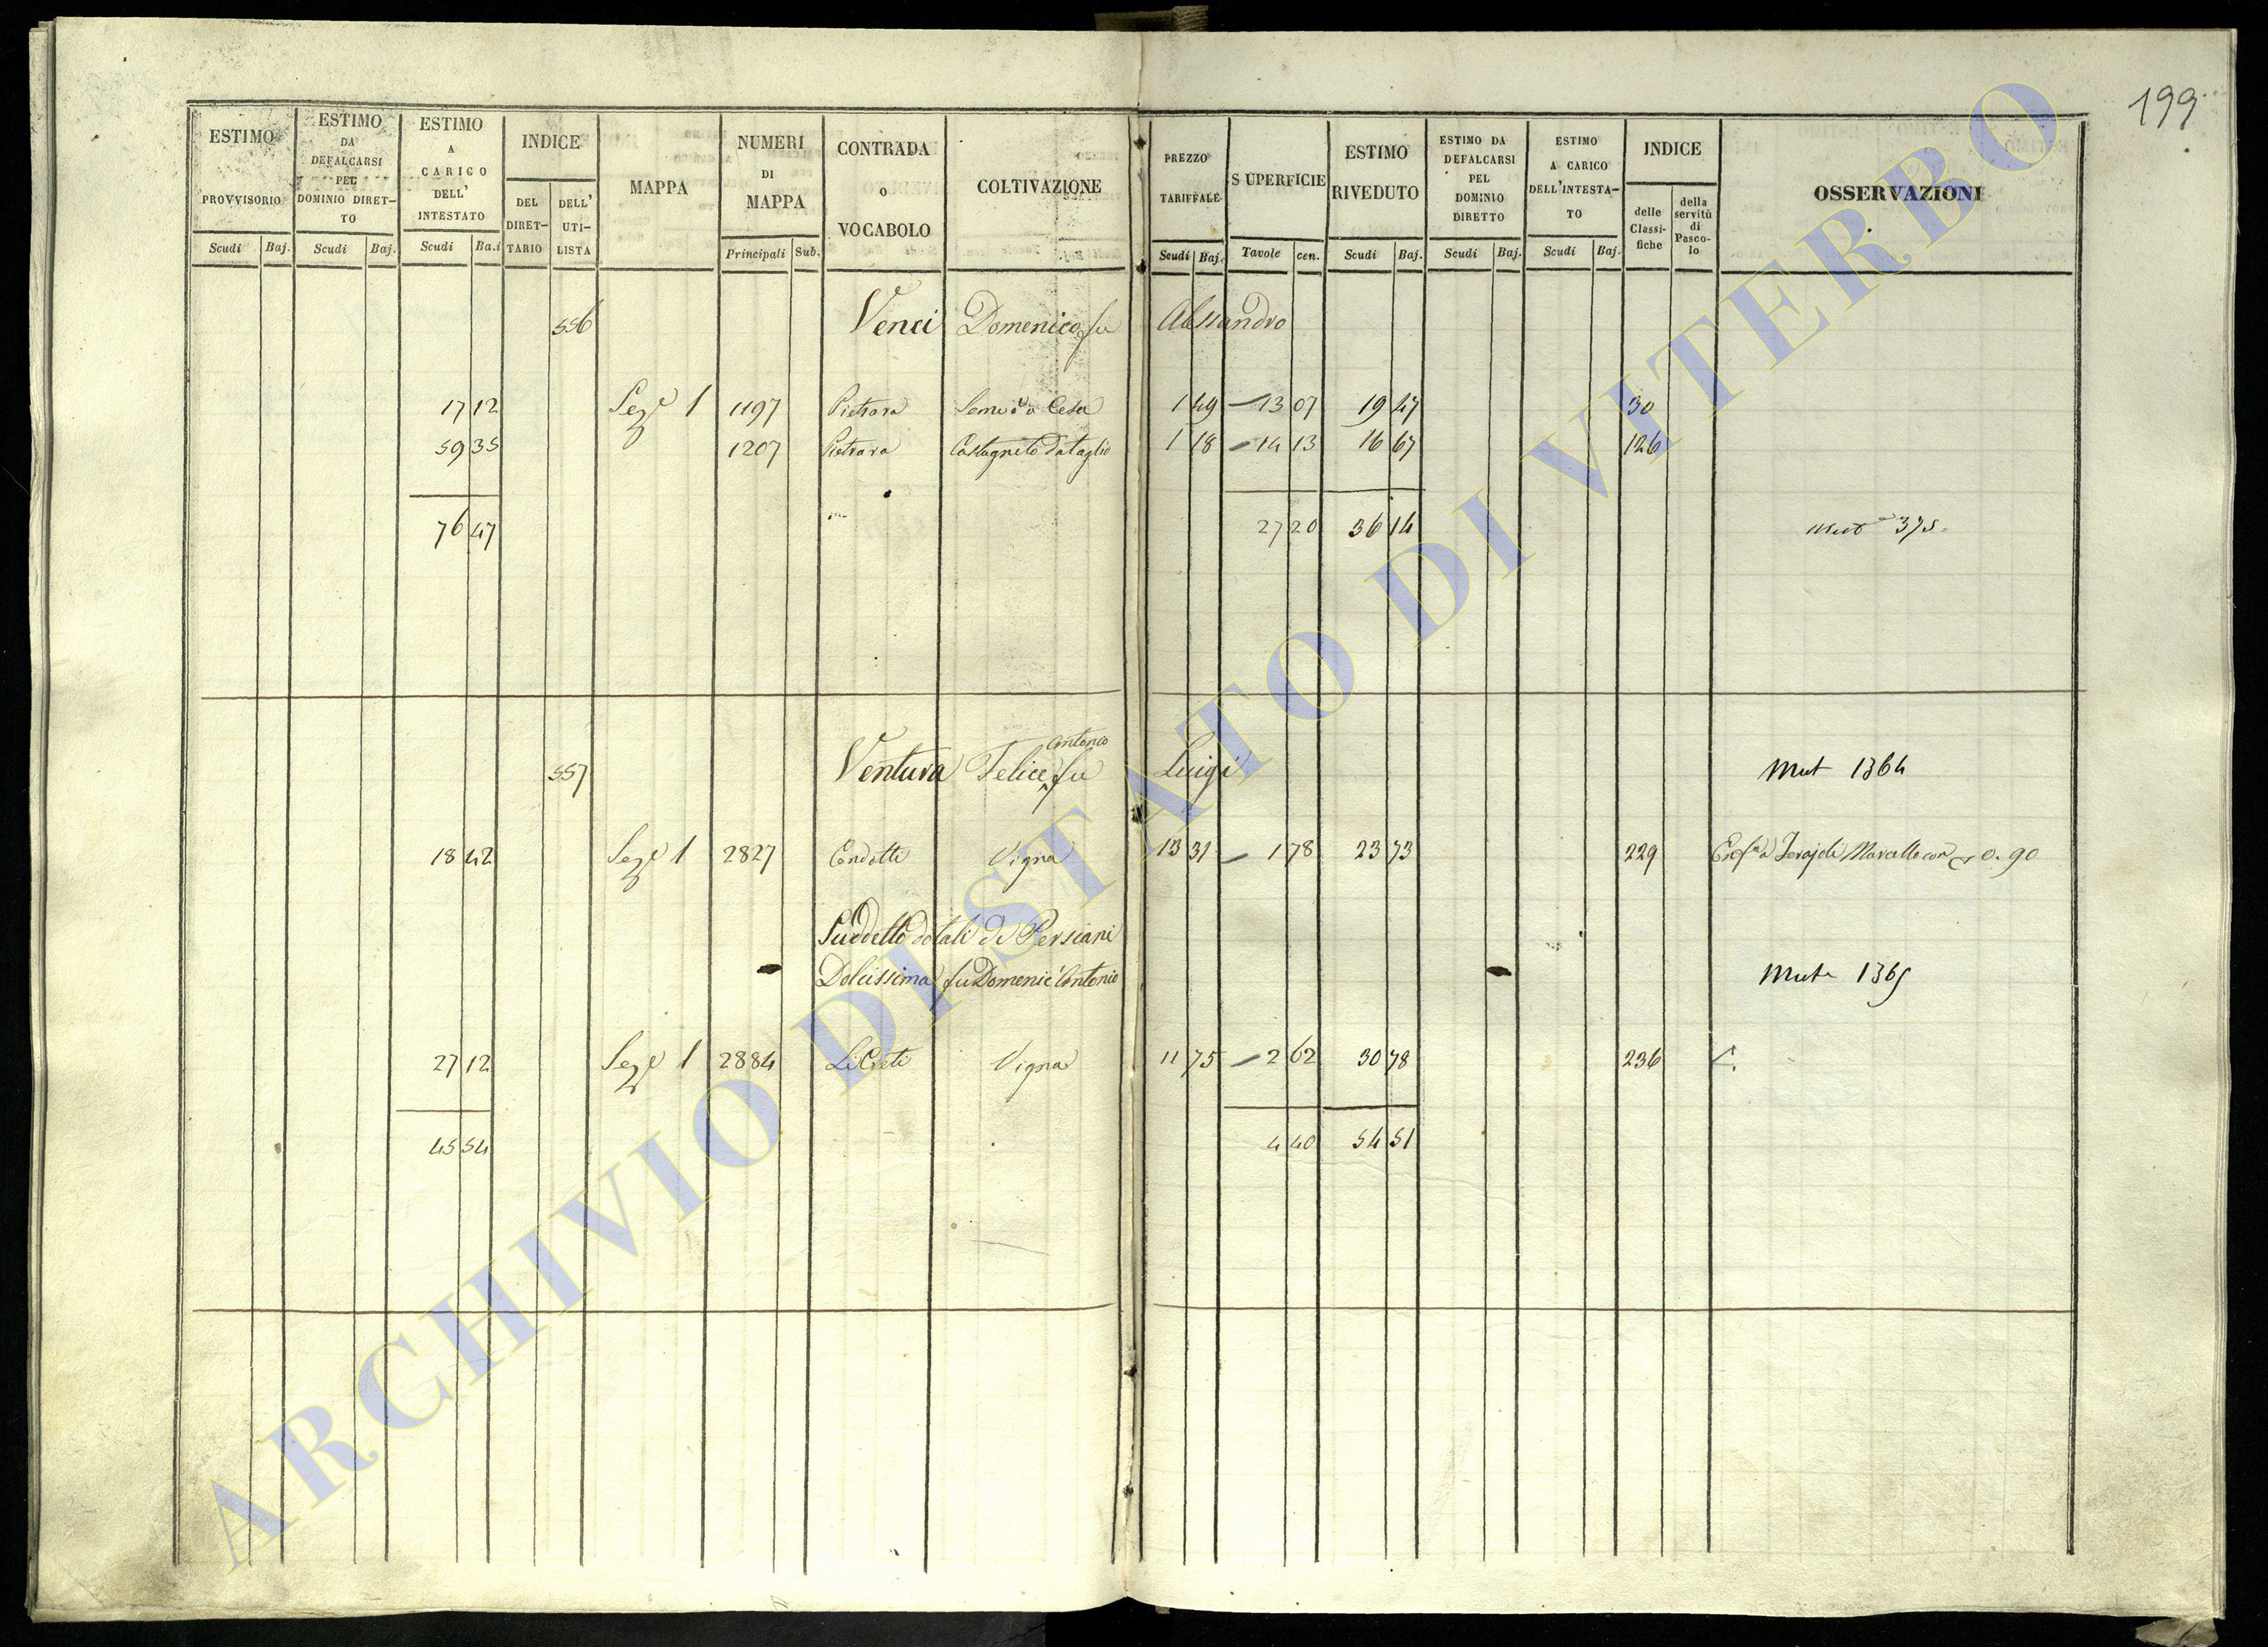 199
ESTIMO PROVVISORIO
ESTIMO DA DEFALCARSI PEL DOMINIO DIRET-TO
ESTIMO A CARICO DELL' INTESTATO
INDICE
DEL DIRET-TARIO
DELL' UTI-LISTA
MAPPA
NUMERI DI MAPPA
CONTRADA O VOCABOLO
COLTIVAZIONE
PREZZO TARIFFALE
SUPERFICIE
ESTIMO RIVEDUTO
ESTIMO DA DEFALCARSI PEL DOMINIO DIRETTO
ESTIMO A CARICO DELL'INTESTA-TO
INDICE
delle Classi-fiche
della servitù di Pasco-lo
OSSERVAZIONI
Scudi Baj. Scudi Baj. Scudi Ba.i Principali Sub. Scudi Baj. Tavole cen. Scudi Baj. Scudi Baj. Scudi Baj.
556 Venci Domenico fu Alessandro
17 12 Sez.e 1 1197 Pietrara 1 49 13 07 19 47 30
59 35 1207 Pietrara Castagneto da taglio 1 18 14 13 16 67 126
76 47 27 20 36 14 375
557 Ventura Felice Antonio fu Luigi Mut 1364
18 42 Sez.e 1 2827 Condotti Vigna 13 31 1 78 23 73 229 0.90
Suddetto dotali di Persiani
Dolcissima fu Domenic'Antonio Mut.e 1365
27 12 Sez.e 1 2884 Li Creti Vigna 11 75 2 62 30 78 236
45 54 4 40 54 51
ARCHIVIO DI STATO DI VITERBO